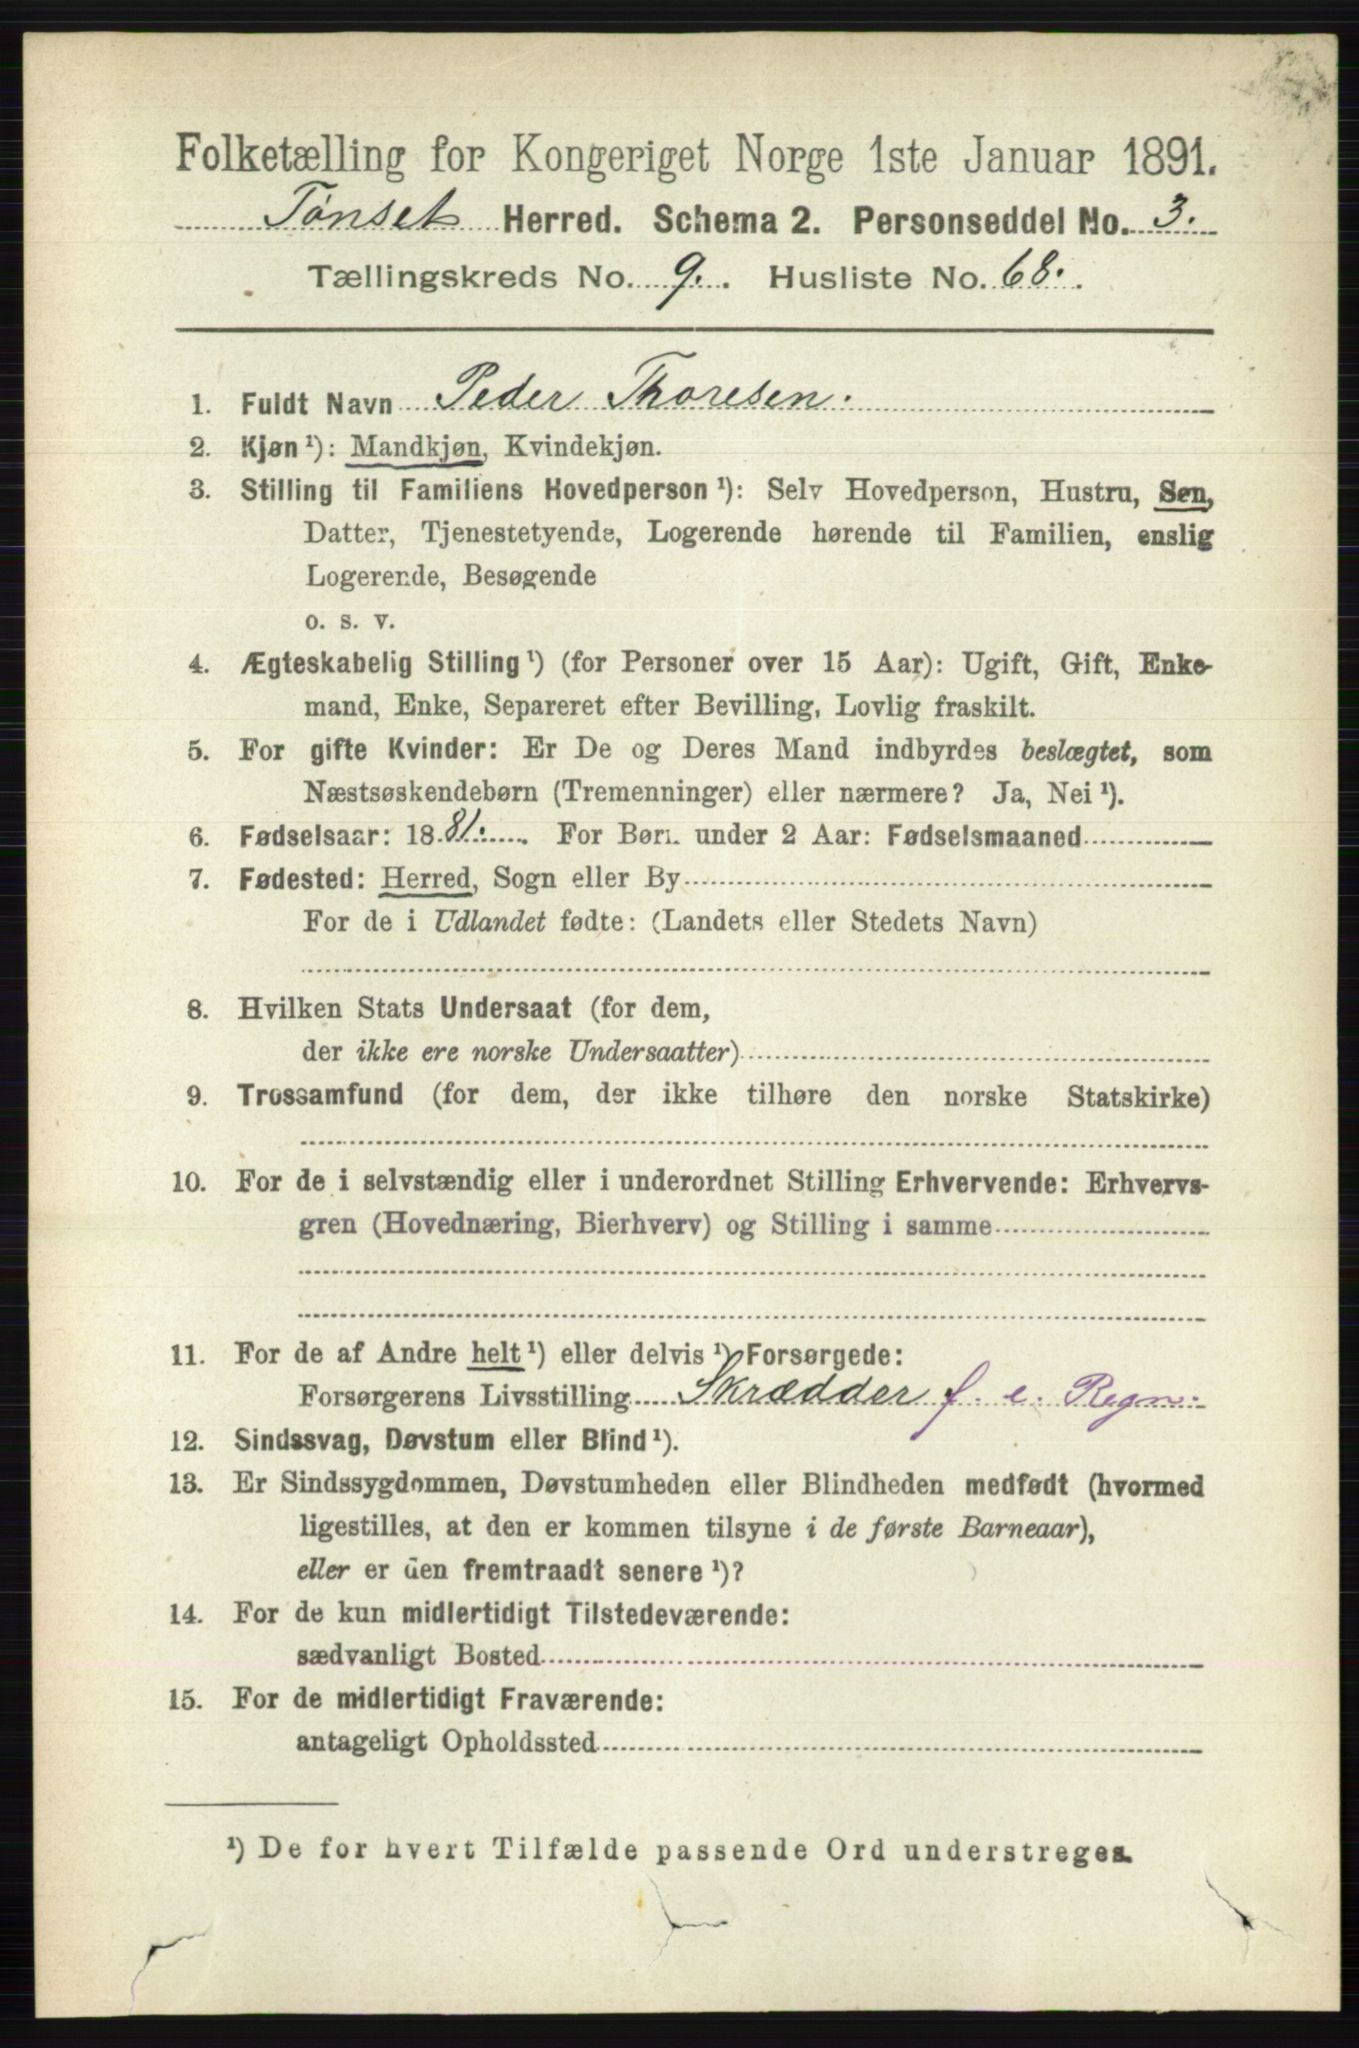 Folketælling for Kongeriget Norge 1ste Januar 1891.
Tønset Herred. Schema 2. Personseddel No. 3.
Tællingskreds No. 9. Husliste No. 68.
1. Fuldt Navn Peder Thoresen.
2. Kjøn ¹): Mandkjøn, Kvindekjøn.
3. Stilling til Familiens Hovedperson ¹): Selv Hovedperson, Hustru, Søn,
Datter, Tjenestetyende, Logerende hørende til Familien, enslig
Logerende, Besøgende
o. s. v.
4. Ægteskabelig Stilling ¹) (for Personer over 15 Aar): Ugift, Gift, Enke-
mand, Enke, Separeret efter Bevilling, Lovlig fraskilt.
5. For gifte Kvinder: Er De og Deres Mand indbyrdes beslægtet, som
Næstsøskendebørn (Tremenninger) eller nærmere? Ja, Nei ¹).
6. Fødselsaar: 1881. For Børn under 2 Aar: Fødselsmaaned
7. Fødested: Herred, Sogn eller By
For de i Udlandet fødte: (Landets eller Stedets Navn)
8. Hvilken Stats Undersaat (for dem,
der ikke ere norske Undersaatter)
9. Trossamfund (for dem, der ikke tilhøre den norske Statskirke)
10. For de i selvstændig eller i underordnet Stilling Erhvervende: Erhvervs-
gren (Hovednæring, Bierhverv) og Stilling i samme
11. For de af Andre helt ¹) eller delvis ¹) Forsørgede:
Forsørgerens Livsstilling Skrædder f. e. Regn.
12. Sindssvag, Døvstum eller Blind ¹).
13. Er Sindssygdommen, Døvstumheden eller Blindheden medfødt (hvormed
ligestilles, at den er kommen tilsyne i de første Barneaar),
eller er den fremtraadt senere ¹)?
14. For de kun midlertidigt Tilstedeværende:
sædvanligt Bosted
15. For de midlertidigt Fraværende:
antageligt Opholdssted
¹) De for hvert Tilfælde passende Ord understreges.